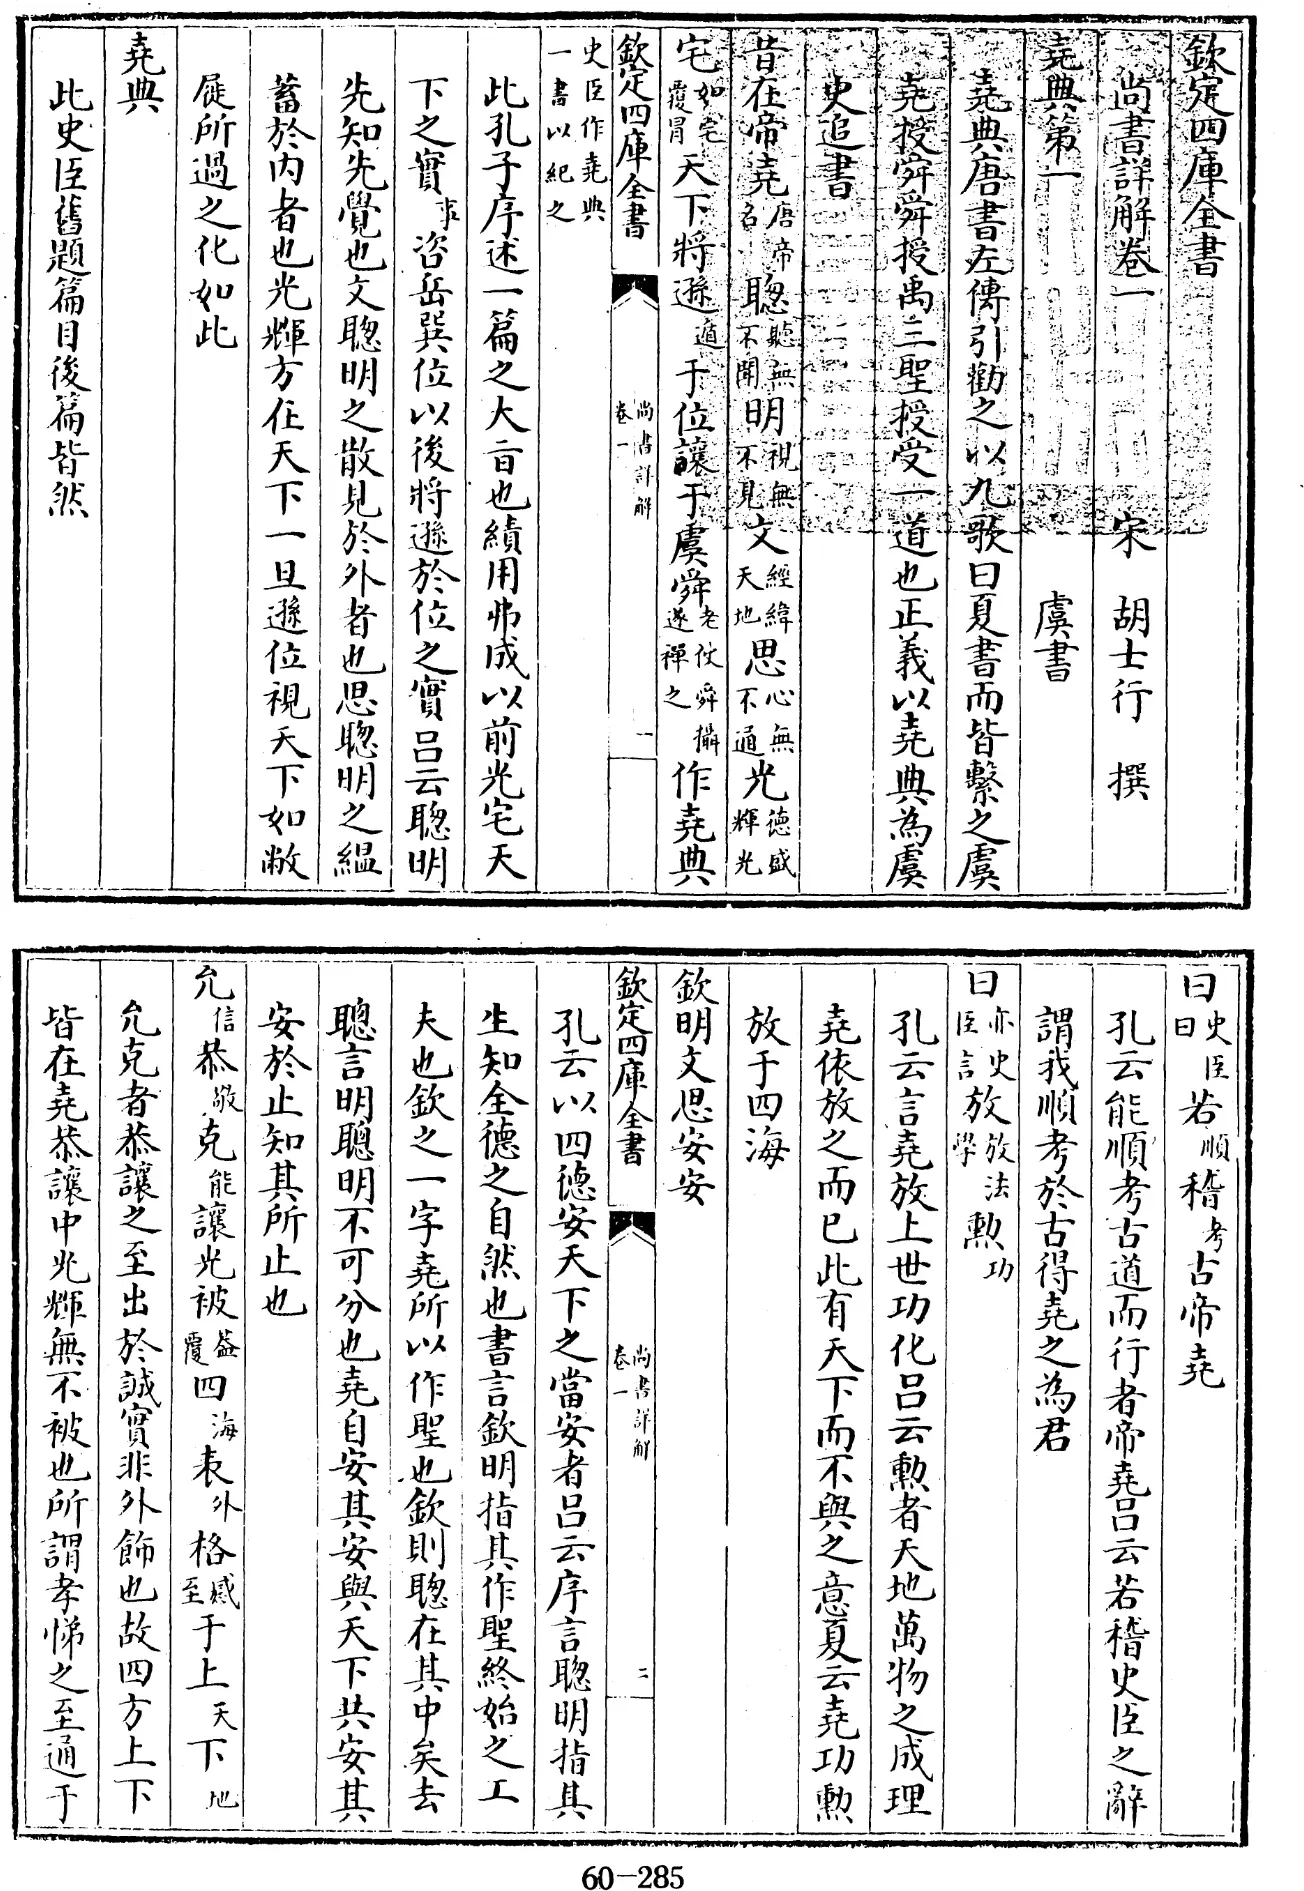 欽定四庫全書
尚書詳解卷一 宋 胡士行 撰
堯典第一 虞書
堯典唐書左傳引勸之以九歌曰夏書而皆繫之虞
堯授舜舜授禹三聖授受一道也正義以堯典為虞
史追書
昔在帝堯唐帝名聰聽無不聞明視無不見文經緯天地思心無不通光德盛輝光
宅如宅覆冒天下將遜遁于位讓于虞舜老使舜攝遂禪之作堯典
欽定四庫全書 尚書詳解 卷一 一
史臣作堯典一書以紀之
此孔子序述一篇之大旨也績用弗成以前光宅天
下之實事咨岳巽位以後將遜於位之實呂云聰明
先知先覺也文聰明之散見於外者也思聰明之緼
蓄於內者也光輝方在天下一旦遜位視天下如敝
屣所過之化如此
堯典
此史臣舊題篇目後篇皆然
曰史臣曰若順稽考古帝堯
孔云能順考古道而行者帝堯呂云若稽史臣之辭
謂我順考於古得堯之為君
曰亦史臣言放放法學勲功
孔云言堯放上世功化呂云勲者天地萬物之成理
堯依放之而已此有天下而不與之意夏云堯功勲
放于四海
欽明文思安安
欽定四庫全書 尚書詳解 卷一 二
孔云以四德安天下之當安者呂云序言聰明指其
生知全德之自然也書言欽明指其作聖終始之工
夫也欽之一字堯所以作聖也欽則聰在其中矣去
聰言明聰明不可分也堯自安其安與天下共安其
安於止知其所止也
允信恭敬克能讓光被蓋覆四海表外格感至于上天下地
允克者恭讓之至出於誠實非外飾也故四方上下
皆在堯恭讓中光輝無不被也所謂孝悌之至通于
60-285